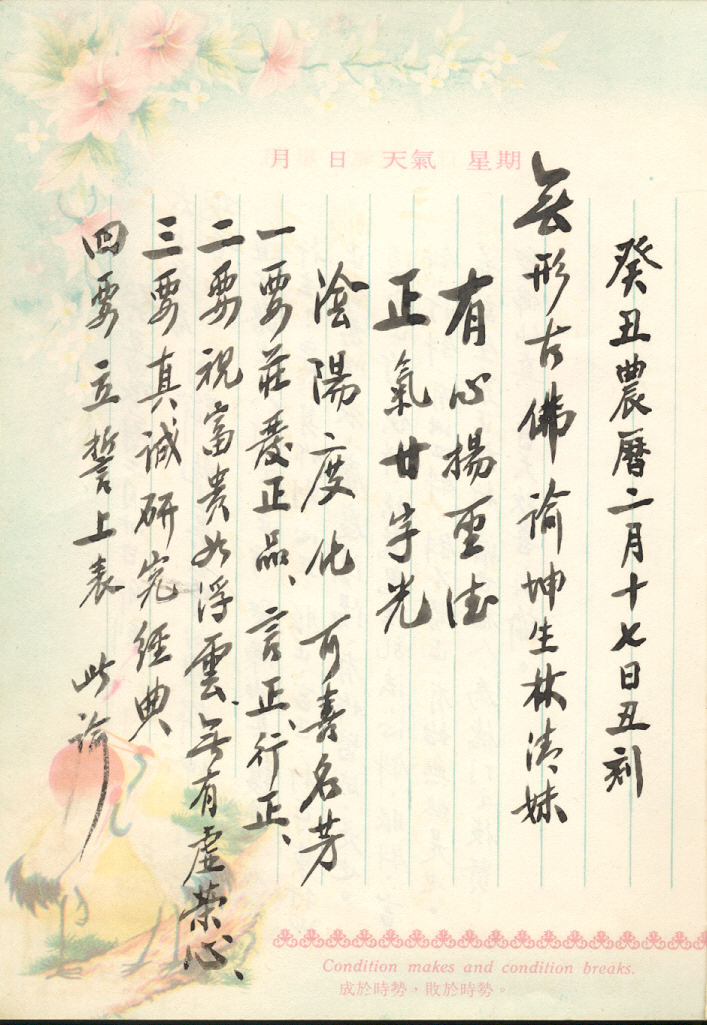 月 日 天氣 星期
癸丑農曆二月十七日丑刻
無形古佛諭坤生林清妹
有心揚聖德
正氣廿字光
陰陽度化 可喜名芳
一要莊嚴正品、言正、行正、
二要視富貴如浮雲、無有虛榮心、
三要真誠研究經典
四要立誓上表 此諭
Condition makes and condition breaks.
成於時勢，敗於時勢。